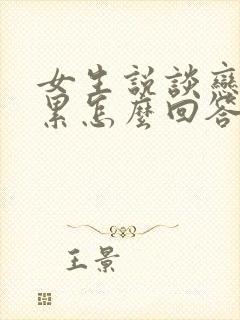 女生説談戀
累怎麼回答
王景